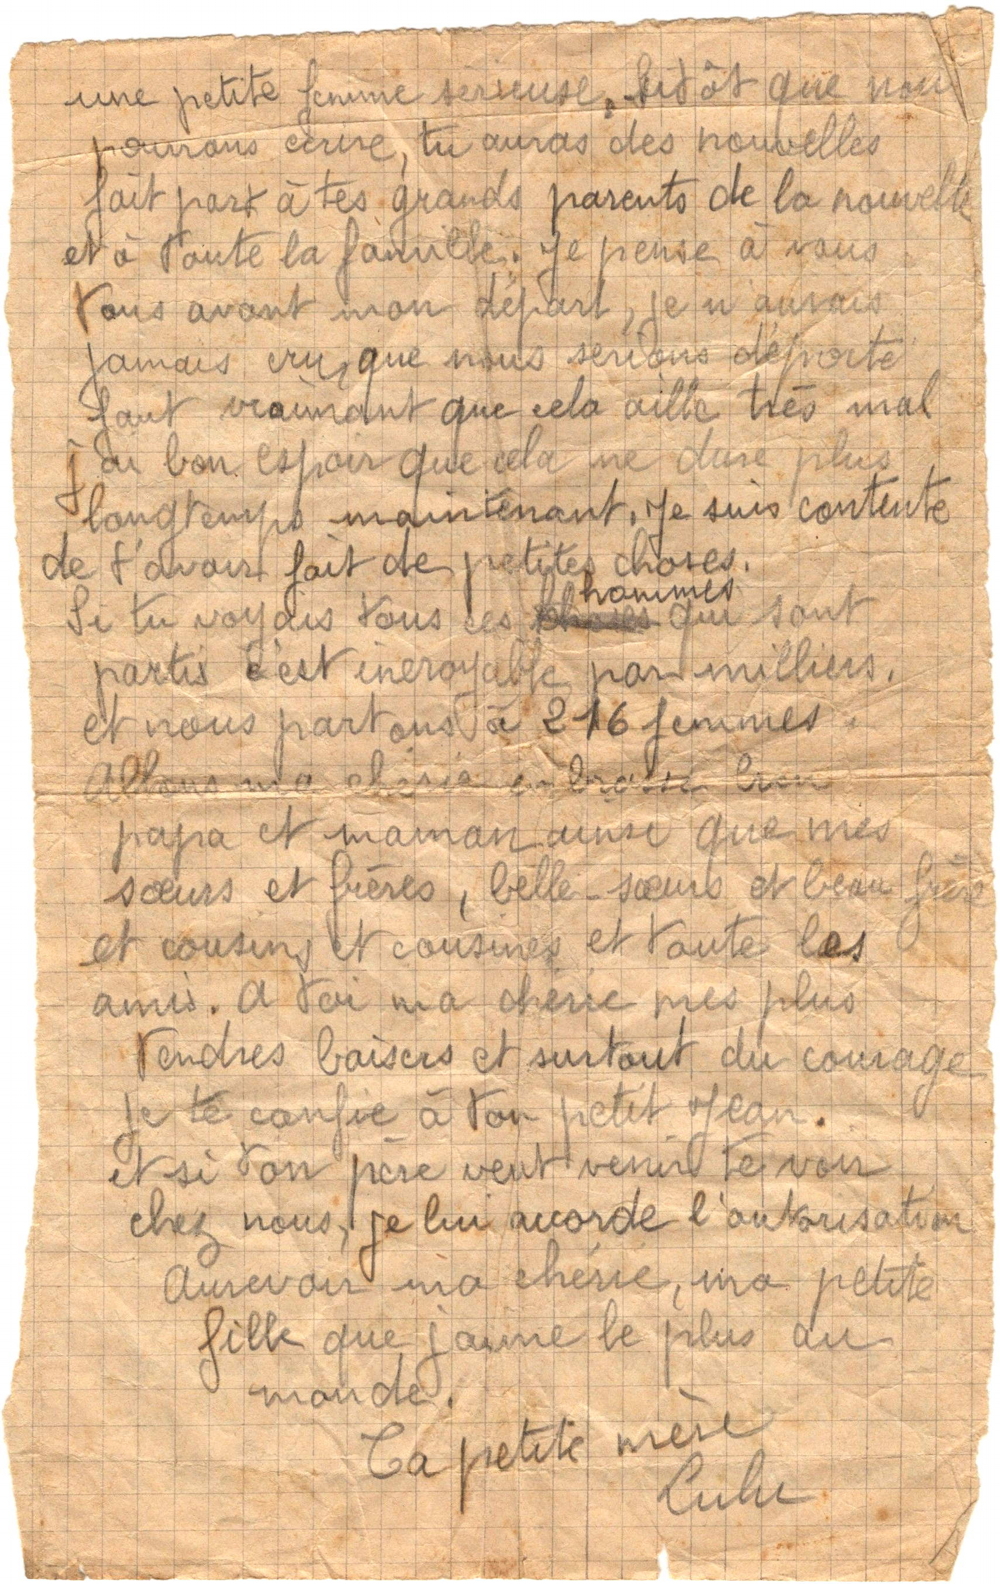 une petite femme serieuse, sitôt que nous
pourrons écrire, tu auras des nouvelles
fait part à tes grands parents de la nouvelle
et à toute la famille. Je pense à vous
tous avant mon départ, je n'aurais
jamais cru, que nous serions déporté
faut vraimant que cela aille très mal
j'ai bon espoir que cela ne dure plus
longtemps maintenant. Je suis contente
de t'avoir fait de petites choses.
Si tu voyais tous ces hommes qui sont
partis c'est incroyable par milliers.
et nous partons à 216 femmes.
Allons ma chérie embrasse bien
papa et maman ainsi que mes
sœurs et frères, belle-sœurs et beau frère
et cousins et cousines et toute les
amis. A toi ma chérie mes plus
tendres baisers et surtout du courage
je te confie à ton petit Jean.
et si ton père veut venir te voir
chez nous, je lui accorde l'autorisation
Aurevoir ma chérie, ma petite
fille que j'aime le plus au
monde.
Ta petite mère
Lulu